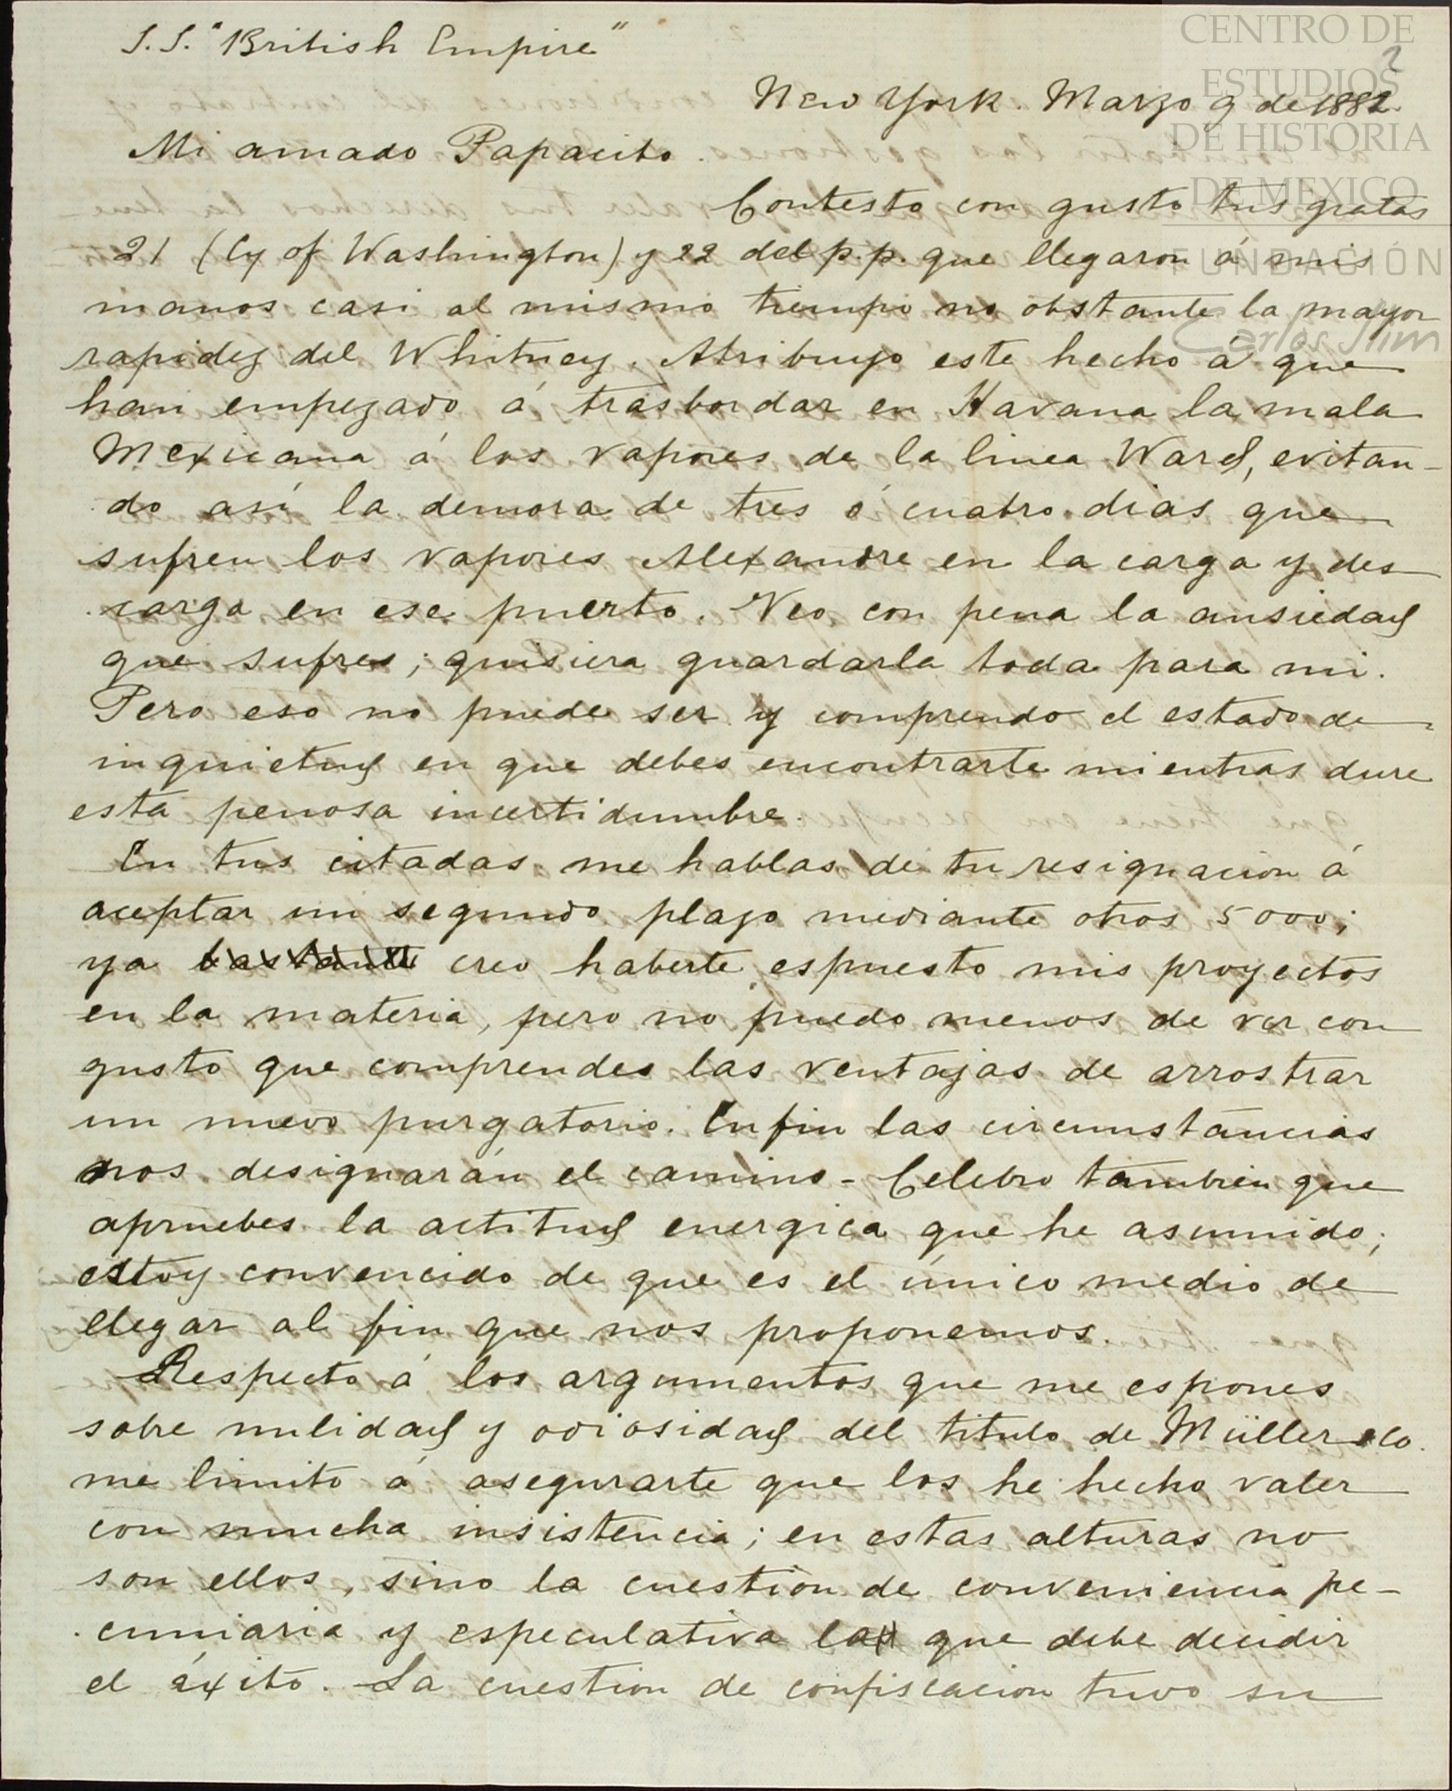 S.S. "British Empire"
2
New York. Marzo 9 de 1882.
Mi amado Papacito.
Contesto con gusto tus gratas
21 (Cy of Washington) y 22 del p.p. que llegaron á mis
manos casi al mismo tiempo no obstante la mayor
rapidez del Whitney. Atribuyo este hecho á que
han empezado á trasbordar en Havana la mala
Mexicana á los vapores de la linea Ward, evitan-
do así la demora de tres ó cuatro dias que
sufren los vapores Alexandre en la carga y des
carga en ese puerto. Veo con pena la ansiedad
que sufres; quisiera guardarla toda para mi.
Pero eso no puede ser y comprendo el estado de
inquietud en que debes encontrarte mientras dure
esta penosa incertidumbre.
En tus citadas me hablas de tu resignacion á
aceptar un segundo plazo mediante otros 5000;
ya bastante creo haberte espuesto mis proyectos
en la materia, pero no puedo menos de ver con
gusto que comprendes las ventajas de arrostrar
un nuevo purgatorio. En fin las circumstancias
nos designarán el camino - Celebro tambien que
apruebes la actitud energica que he asumido;
estoy convencido de que es el único medio de
llegar al fin que nos proponemos.
Respecto á los argumentos que me espones
sobre nulidad y odiosidad del titulo de Müller & Co.
me limito á asegurarte que los he hecho valer
con mucha insistencia; en estas alturas no
son ellos, sino la cuestion de conveniencia pe-
cuniaria y especulativa la que debe decidir
el éxito. La cuestion de confiscacion tuvo su
CENTRO DE
ESTUDIOS
DE HISTORIA
DE MEXICO
FUNDACIÓN
Carlos Slim